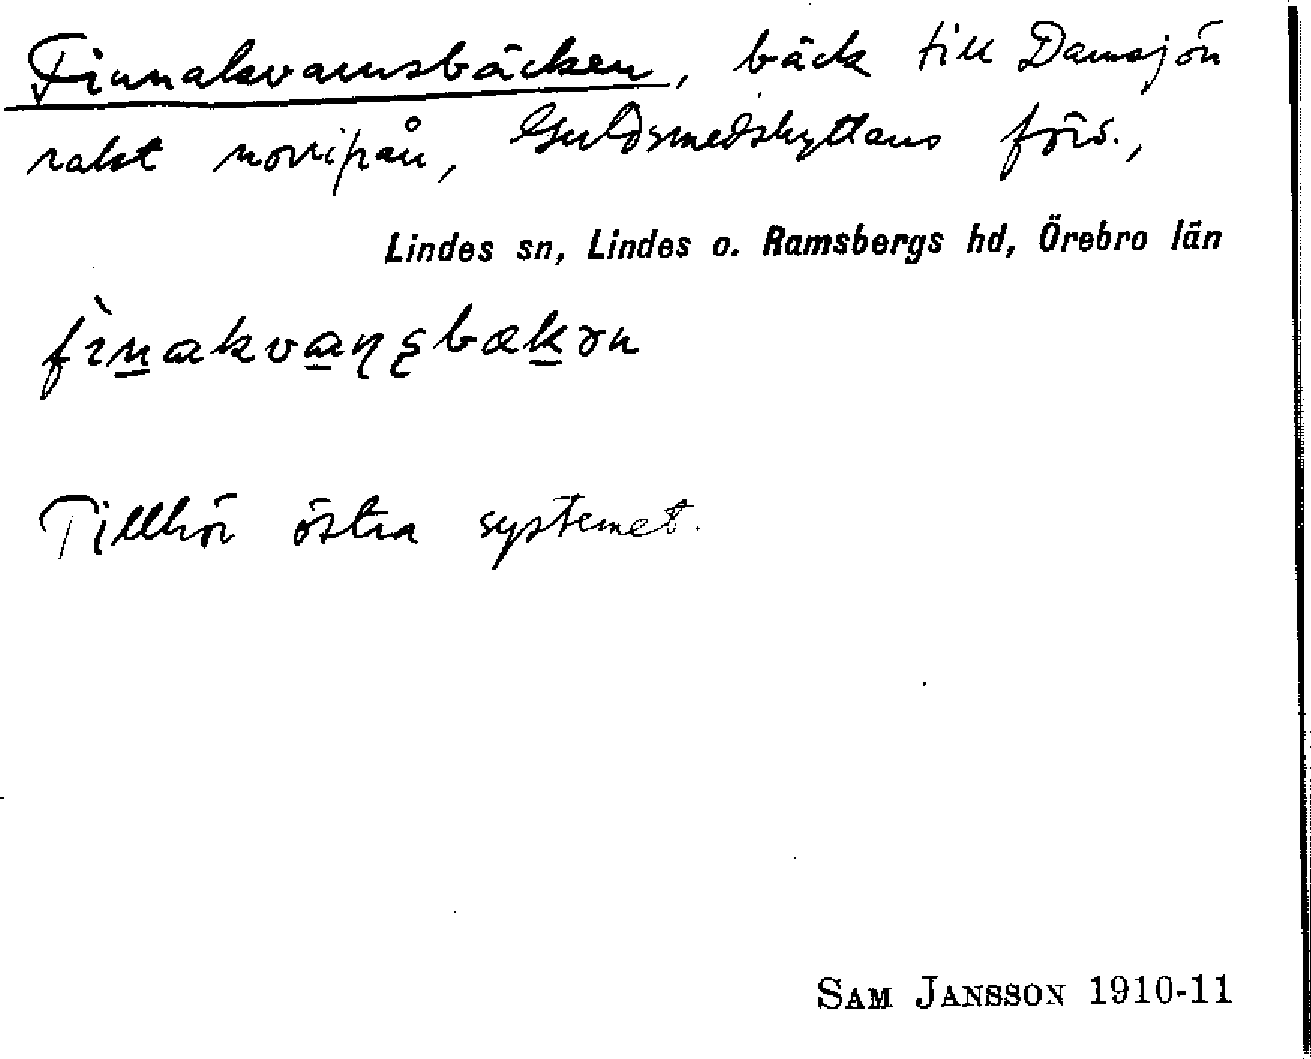 Finnakvarnsbäcken, bäck till Damsjön
rakt norrifrån, Guldsmedshyttans förs.,
Lindes sn, Lindes o. Ramsbergs hd, Örebro län
Tillhör östra systemet.
SAM JANSSON 1910-11